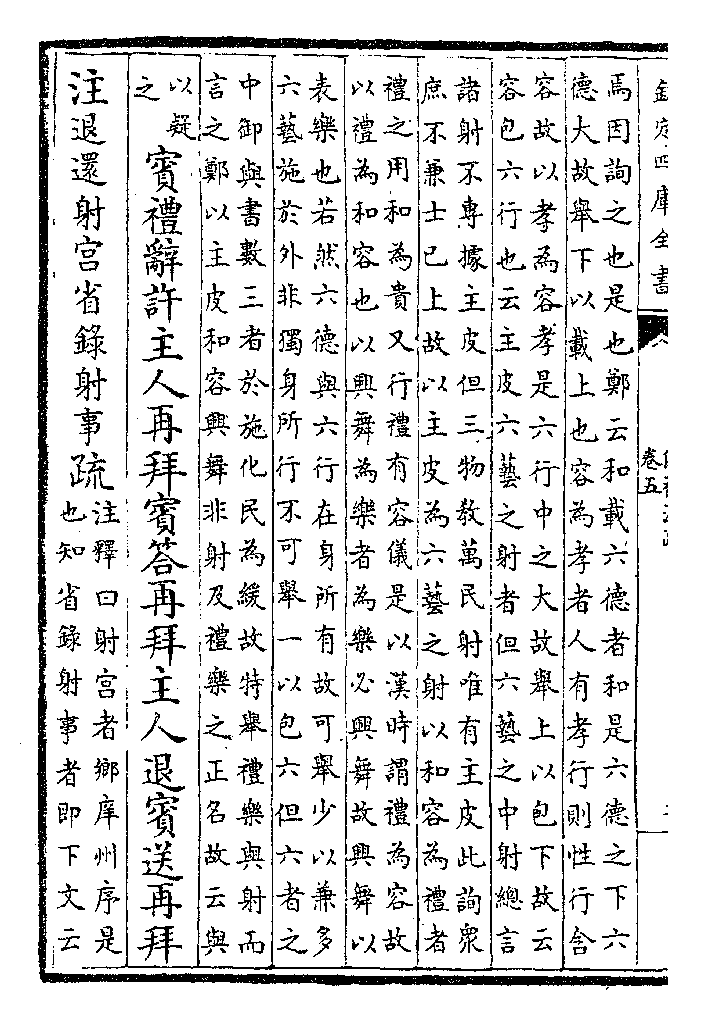 欽定四庫全書
卷五
焉因詢之也是也鄭云和載六德者和是六德之下六
德大故舉下以載上也容為孝者人有孝行則性行含
容故以孝為容孝是六行中之大故舉上以包下故云
容包六行也云主皮六藝之射者但六藝之中射總言
諸射不專據主皮但三物教萬民射唯有主皮此詢衆
庶不兼士已上故以主皮為六藝之射以和容為禮者
禮之用和為貴又行禮有容儀是以漢時謂禮為容故
以禮為和容也以興舞為樂者為樂必興舞故興舞以
表樂也若然六德與六行在身所有故可舉少以兼多
六藝施於外非獨身所行不可舉一以包六但六者之
中御與書數三者於施化民為緩故特舉禮樂與射而
言之鄭以主皮和容興舞非射及禮樂之正名故云與
以疑
之
賓禮辭許主人再拜賓答再拜主人退賓送再拜
注退還射宮省錄射事疏
注釋曰射宮者鄉庠州序是
也知省錄射事者即下文云